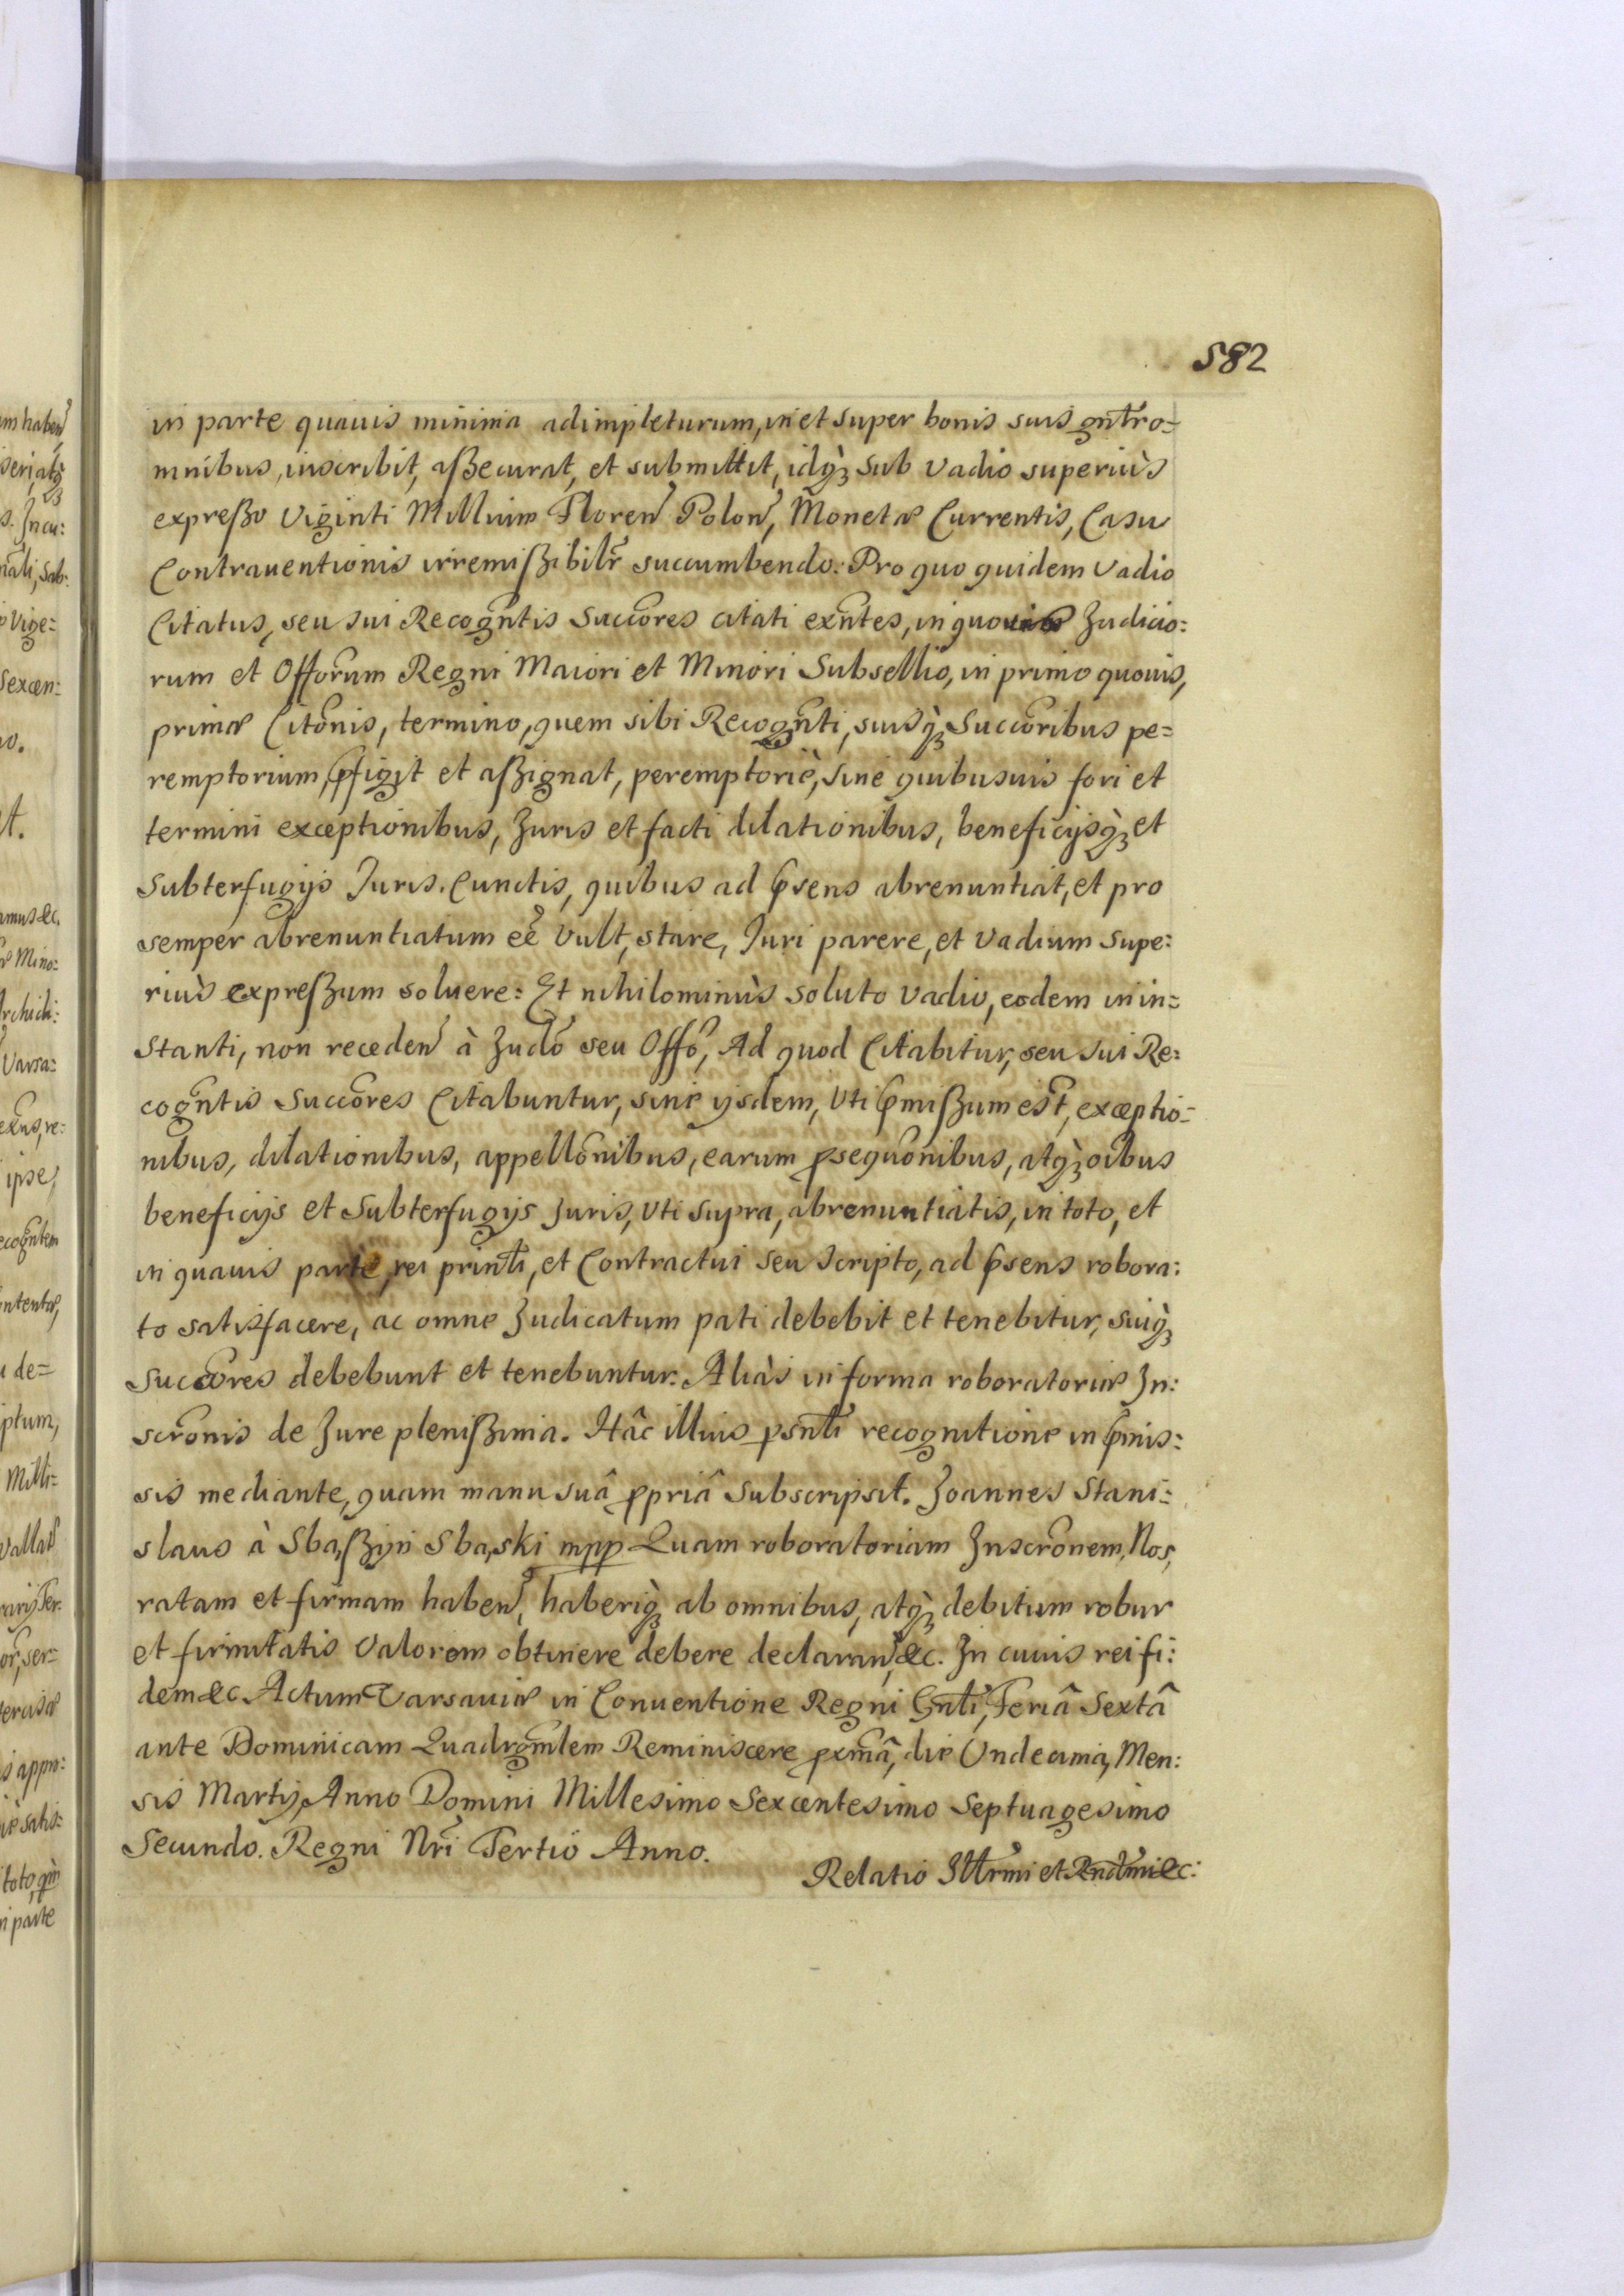 582
in parte quauis minima adimpleturum, in et super bonis suis gnĩr o=
mnibus, inscribit, aßecurat, et submittit, idq̀ꝫ sub vadio superiùs
expreßo Viginti Millium Floren̄ Polon̄, Monetæ Currentis, Casu
Contrauentionis irremißibilr̃ succumbendo: Pro quo quidem Vadio
Citatus, seu sui Recogñtis Succōres citati exñtes, in quouis Judicio:
rum et Offōrum Regni Maiori et Minori Subsellio, in primo quouis,
primæ Citōnis, termino, quem sibi Recogñti, suisq̀ꝫ Succōribus pe=
remptorium, p̄figit et aßignat, peremptoriè, sine quibusuis fori et
termini exceptionibus, Juris et facti dilationibus, beneficijsq̀ꝫ et
Subterfugijs Juris. Cunctis, quibus ad p̄sens abrenuntiat, et pro
semper abrenuntiatum eē̃ Vult, stare, Juri parere, et Vadium supe:
riùs expreßum soluere: Et nihilominùs soluto Vadio, eodem in in=
stanti, non receden̄ à Judō seu Offō, Ad quod Citabitur, seu sui Re:
cogñtis Succōres Citabuntur, sine ijsdem, Vti p̄mißum est, exceptio=
nibus, dilationibus, appellōnibus, earum ꝓsequōnibus, atq̀ꝫ oībus
beneficijs et Subterfugijs Juris, Vti supra, abrenuntiatis, in toto, et
in quauis parte, rei prinłi, et Contractui seu Scripto, ad p̄sens robora:
to satisfacere, ac omne Judicatum pati debebit et tenebitur, suiq̀ꝫ
Succōres debebunt et tenebuntur: Aliàs in forma roboratoriæ In:
scrōnis de Jure plenißima. Hâc illius ꝑsnłi recognitione in p̄mis:
sis mediante, quam manu suâ ꝓpriâ Subscripsit. Joannes Stani=
slaus à Sbąßyn Sbąski mpp Quam roboratoriam Inscrōnem, Nos,
ratam et firmam haben̄, haberiq̀ꝫ ab omnibus, atq̀ꝫ debitum robur
et firmitatis Valorem obtinere debere declaran̄, &c. In cuius rei fi:
dem &c. Actum Varsauiæ in Conuentione Regni Gnłi, Feriâ Sextâ
ante Dominicam Quadrgm̄lem Reminiscere ꝓxm̄â, die Undecima, Men:
sis Martij, Anno Domini Millesimo Sexcentesimo Septuagesimo
Secundo. Regni Nrĩ Tertio Anno.
Relatio Illr̄mi et Rndm̄i &c: